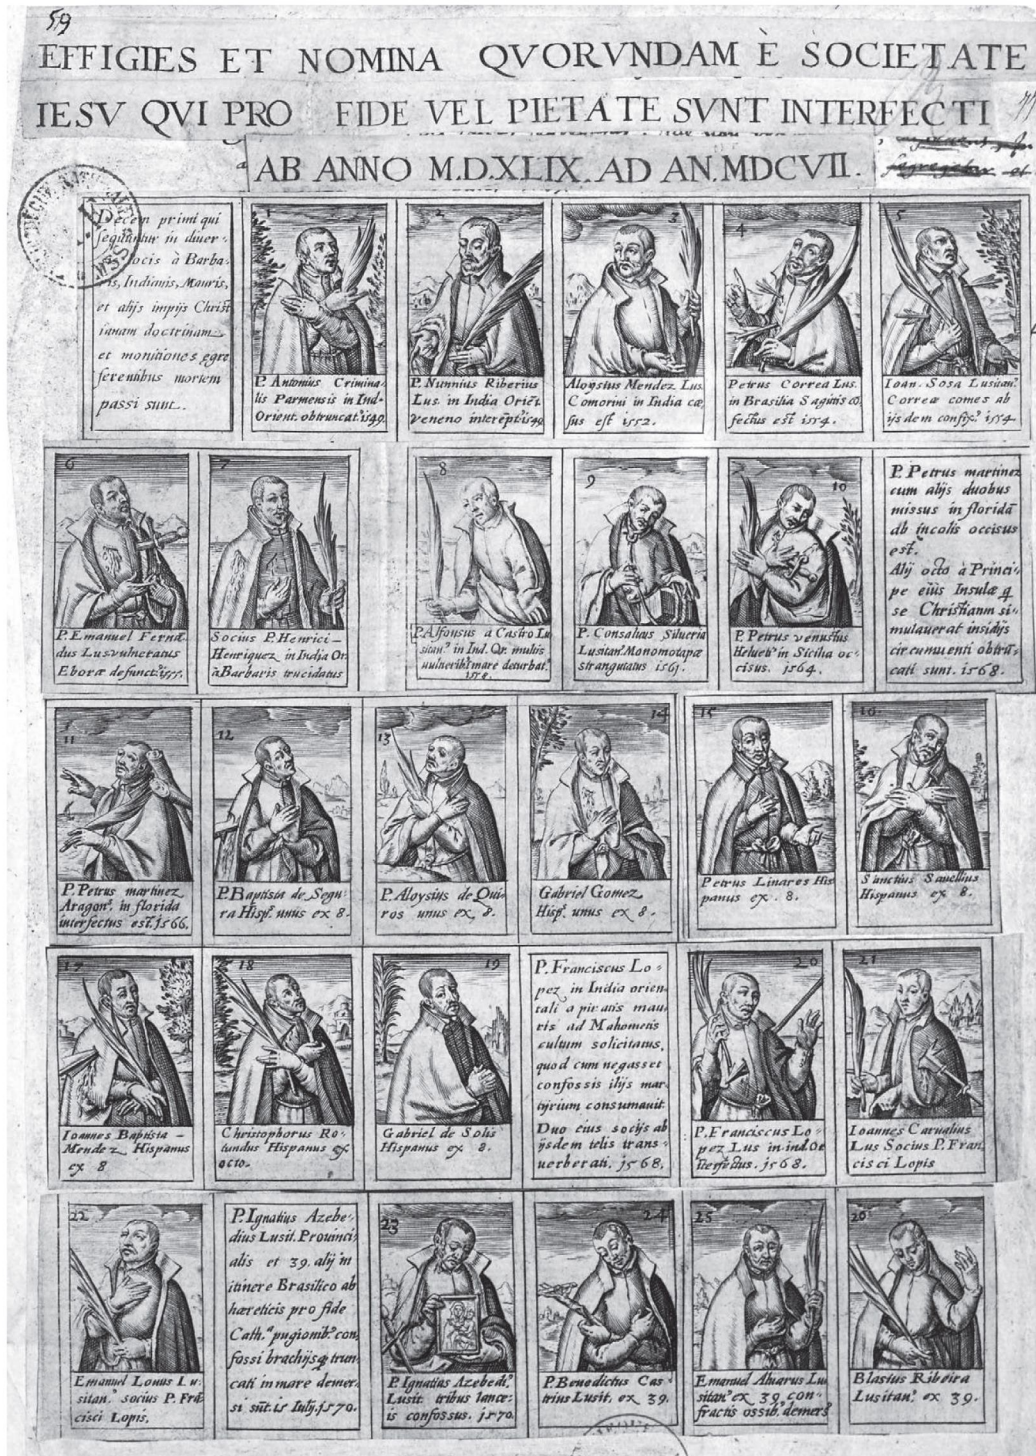 59
EFFIGIES ET NOMINA QVORVNDAM È SOCIETATE
IESV QVI PRO FIDE VEL PIETATE SVNT INTERFECTI
AB ANNO M.D.XLIX. AD AN. MDCVII.
Decem primi qui
sequuntur in diver-
locis à Barba-
is, Indianis, Mauris,
et alijs impijs Christ
ianam doctrinam
et monitiones egre
ferentibus mortem
passi sunt.
1
P. Antonius Crimina-
lis Parmensis in Ind-
Orient. obtruncat. 1549.
2
P. Nunnius Riberius
Lus. in India Oriēt.
veneno interēpt. 1549
3
Aloysius Mendez Lus.
Comorini in India cæ
sus est 1552.
4
Petrus Correa Lus.
in Brasilia Sagittis cō
fectus est 1554.
5
Ioan. Sosa Lusitan.
Correæ comes ab
ijsdem confix. 1554.
6
P. Emanuel Fernā
dus Lus. vulneratus
Eboræ defunct.
7
Socius P. Henrici-
Henriquez in India Or.
à Barbaris trucidatus
8
P. Alfonsus a Castro Lu
sitan. in Ind. Or. multis
mare deturbat.
1558.
9
P. Consaluus Silueria
Lusitan. Monomotapæ
strangulatus 1561.
10
P. Petrus venustus
Helvet. in Sicilia oc-
cisus. 1564.
P. Petrus martinez
cum alijs duobus
missus in floridā
ab incolis occisus
est.
Alij octo à Princi-
pe eius Insulæ q
se Christianum si-
mulauerat insidijs
circumuenti obtrū
cati sunt. 1568.
11
P. Petrus martinez
Aragon. in florida
interfectus est. 1566.
12
P. Baptista de Segu-
ra Hisp. unus ex 8.
13
P. Aloysius de Qui-
ros unus ex 8.
14
Gabriel Gomez
Hisp. unus ex 8.
15
Petrus Linares His
panus ex. 8.
16
Sanctius Sauellius
Hispanus ex 8.
17
Ioannes Baptista -
Mendez Hispanus
ex 8
18
Christophorus Ro-
tundus Hispanus ex
octo.
19
Gabriel de Solis
Hispanus ex 8.
P. Franciscus Lo-
pez in India orien-
tali a piratis mau
ris ad Mahometis
cultum solicitatus,
quod cum negasset
confossis ilijs mar
tyrium consumauit.
Duo eius socijs ab
ijsdem telis trans-
uerberati. 1568.
20
P. Franciscus Lo-
pez Lus in ind. Or
Iterfectus. 1568.
21
Ioannes Carualius
Lus Socius P. Fran
cisci Lopis
22
Emanuel Lonus Lu-
sitan. socius P. Frā
cisci Lopis.
P. Ignatius Azebe-
dius Lusit. Prouinci-
alis et 39. alij in
itinere Brasilico ab
hæreticis pro fide
Cath. pugionib. con
fossi brachijsq trun
cati in mare demer-
si sūt. 15 Iulij. 1570.
23
P. Ignatius Azebedi.
Lusit. tribus lance-
is confossus. 1570.
24
P. Benedictus Cas-
trius Lusit. ex 39.
25
Emanuel Aluarus Lu
sitan. ex 39. con-
fractis ossib. demers.
26
Blasius Ribeira
Lusitan. ex 39.